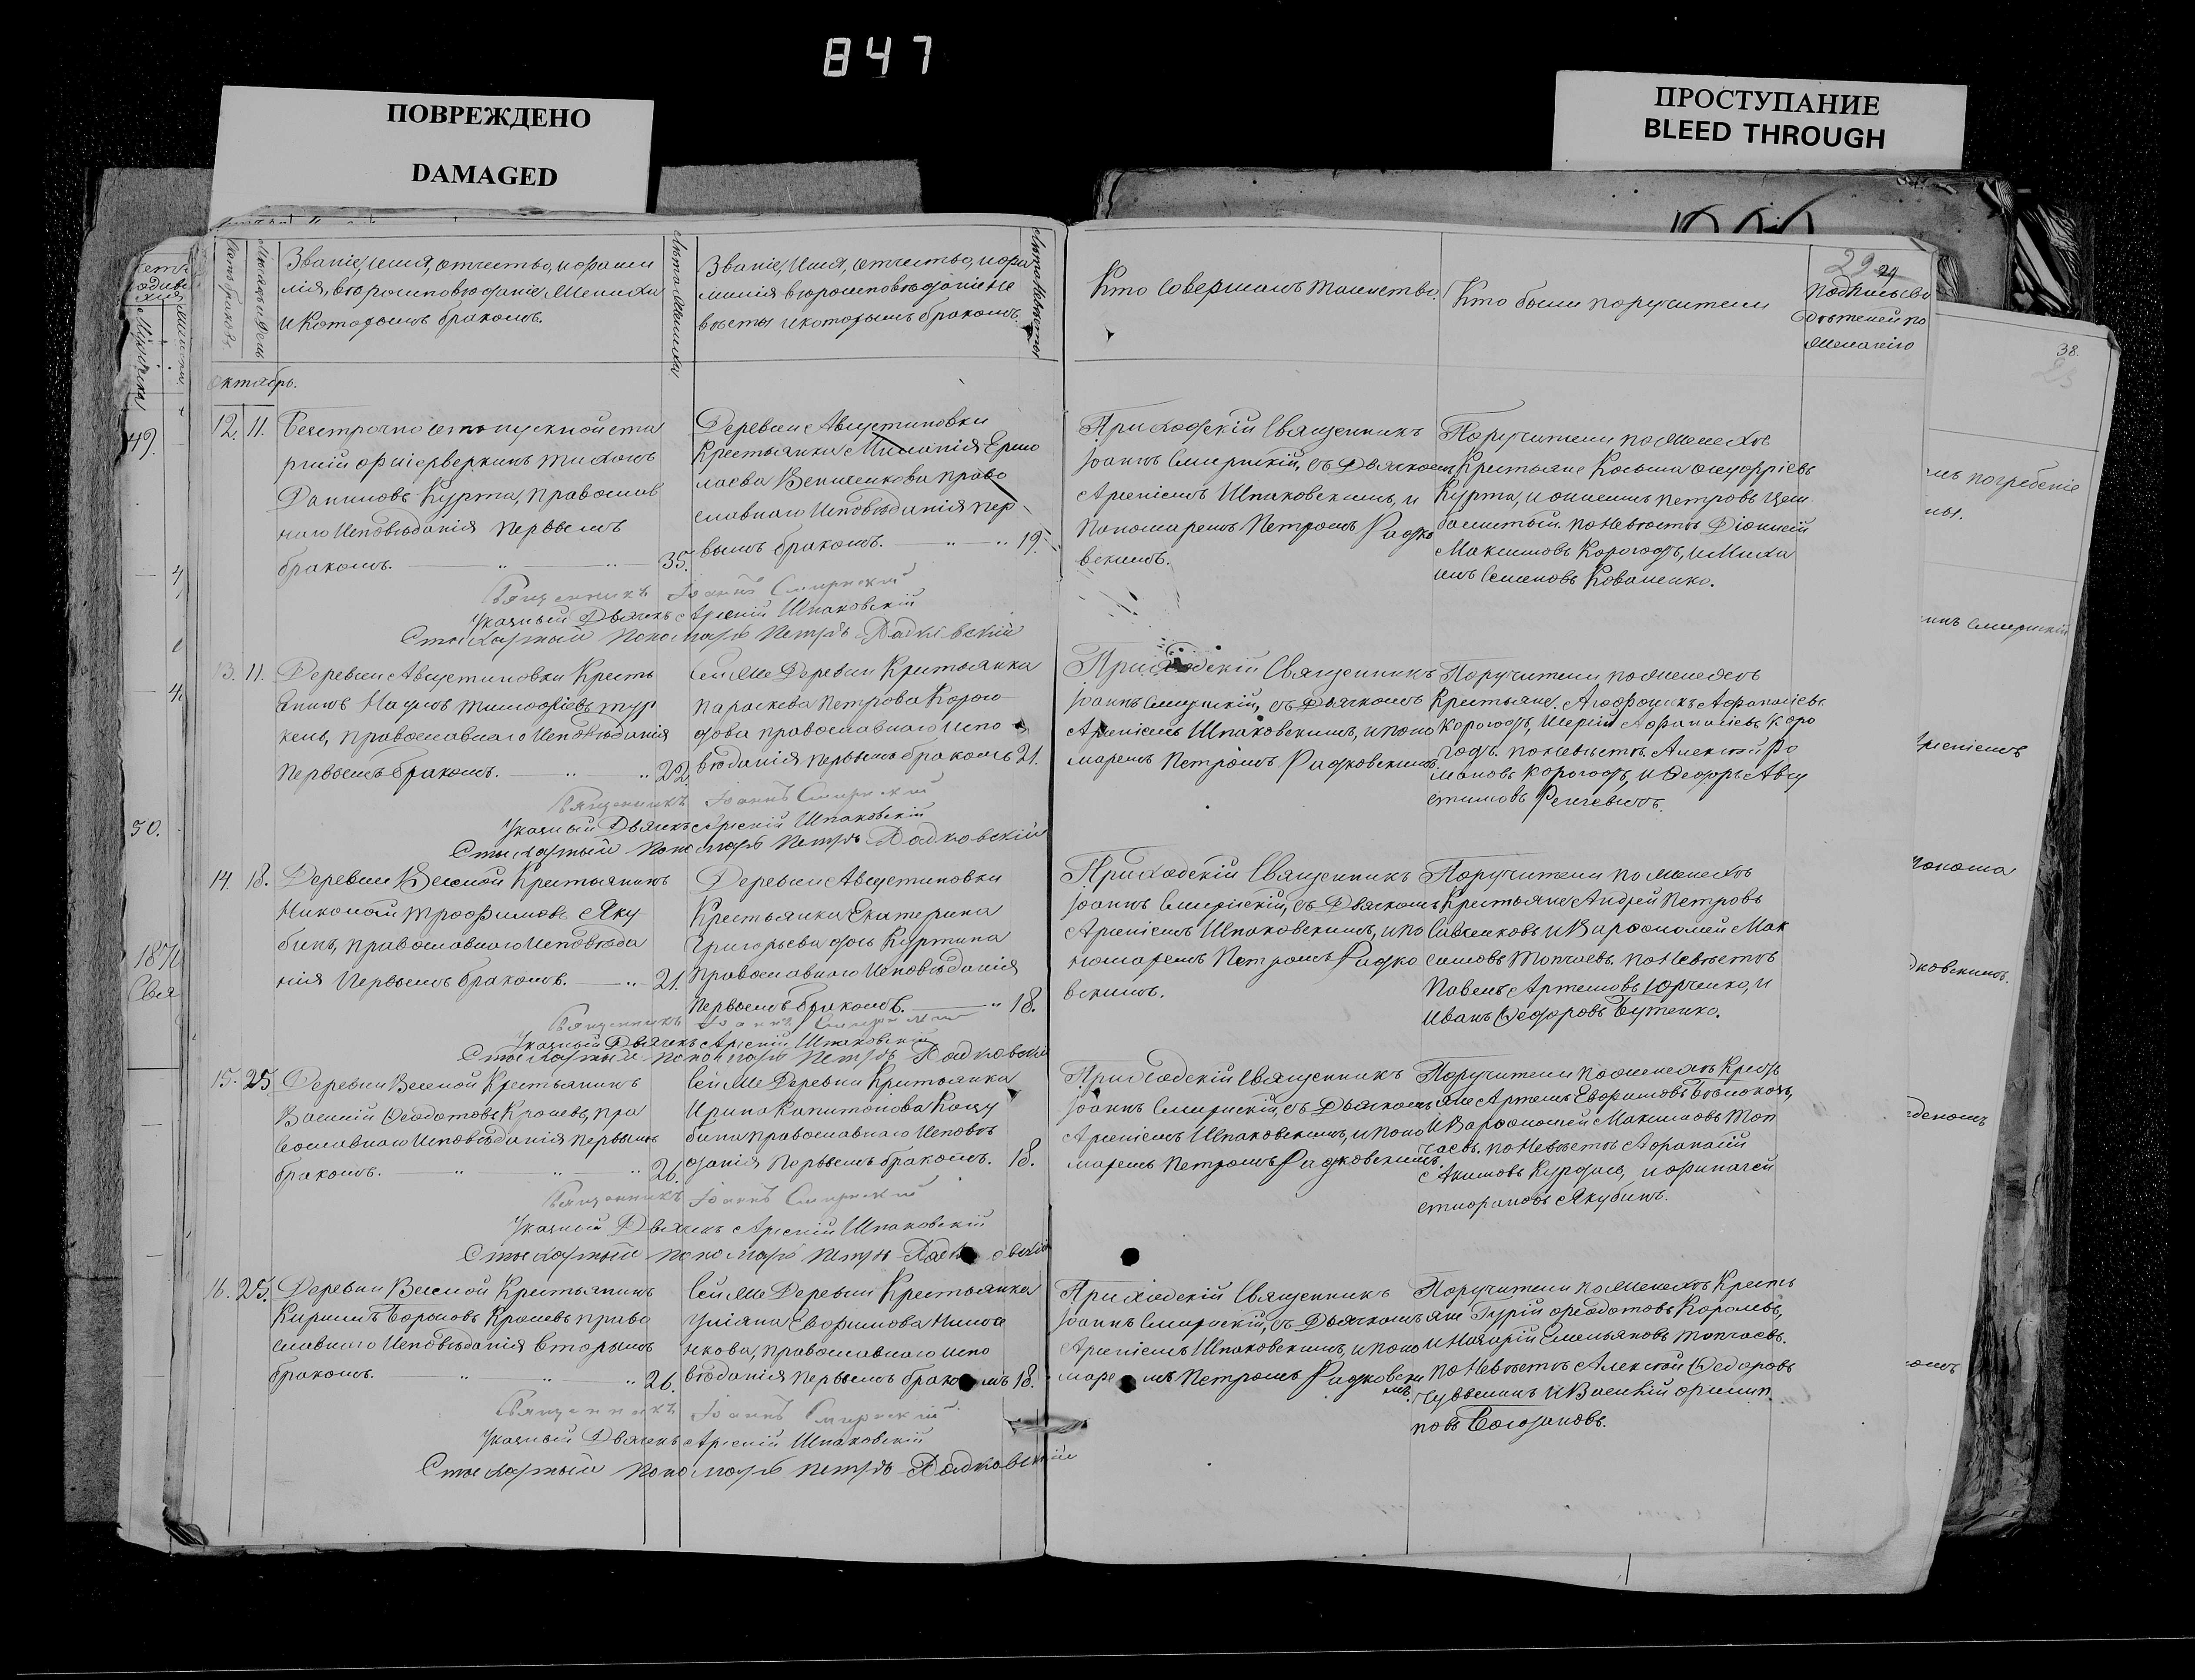 847
ПОВРЕЖДЕНО
DAMAGED
ПРОСТУПАНИЕ
BLEED THROUGH
Званіе, имя, отчество, и фами
лія, вѣроисповѣданіе Жениха
и которымъ бракомъ.
Лѣта Жениха
Званіе, Имя, отчество, и фа
милія вѣроисповѣданіе Не
вѣсты и которымъ бракомъ.
Лѣта Невѣсты
Кто совершалъ таинство.
Кто были поручители
29 24
Подпись сви
дѣтелей по
желанію
38.
23
октябрь.
12. 11.
Безсрочно отпускной ста
ршій фейерверкеръ Тихонъ
Даниловъ Курта, православ
наго Исповѣданія первымъ
бракомъ. 35.
Деревни Августиновки
Крестьянка Миланія Ермо
лаева Веписникова право
славнаго Исповѣданія пер
вымъ бракомъ. 19.
Приходскій Священникъ
Іоаннъ Смирнскій, съ Дьячкомъ
Арсеніемъ Шпаковскимъ, и
Пономаремъ Петромъ Радко
вскимъ.
Поручители по женихѣ
Крестьяне Косьма Онуфріевъ
Курта, и Онисимъ Петровъ Цем
балистый. по Невѣстѣ Діонисій
Максимовъ Корогодъ, и Миха
илъ Семеновъ Коваленко.
Священникъ Іоаннъ Смирнскій
Указный Дьячекъ Арсеній Шпаковскій
Стихарный пономарь Петръ Радковскій
13. 11.
Деревни Августиновки Кресть
янинъ Наумъ Тимофіевъ Тур
кенъ, православнаго Исповѣданія
Первымъ бракомъ. 22.
Сей же Деревни Крестьянка
Параскева Петрова Корого
дова православнаго испо
вѣданія первымъ бракомъ 21.
Приходскій Священникъ
Іоаннъ Смирнскій, съ Дьячкомъ
Арсеніемъ Шпаковскимъ, и поно
маремъ Петромъ Радковскимъ.
Поручители по женихѣ
Крестьяне. Агафоникъ Афанасіевъ
Корогодъ, и Сергій Афанасіевъ Коро
годъ. по Невѣстѣ. Алексѣй Ро
мановъ Корогодъ, и Федоръ Авгу
стиновъ
Священникъ Іоаннъ Смирнскій
Указный Дьячекъ Арсеній Шпаковскій
Стихарный пономарь Петръ Радковскій
14. 18.
Деревни Веселой Крестьянинъ
Николай Трофимовъ Яку
бинъ, православнаго Исповѣда
нія Первымъ бракомъ. 21.
Деревни Августиновки
Крестьянка Екатерина
Григорьева дочь Куртина
Православнаго Исповѣданія
Первымъ бракомъ. 18.
Приходскій Священникъ
Іоаннъ Смирнскій, съ Дьячкомъ
Арсеніемъ Шпаковскимъ, и по
номаремъ Петромъ Радко
вскимъ.
Поручители по женихѣ
Крестьяне Андрей Петровъ
Савенковъ и Варфоломей Мак
симовъ Топчаевъ. по Невѣстѣ
Павелъ Артемовъ Юрченко, и
Иванъ Федоровъ Бутенко.
Священникъ Іоаннъ Смирнскій
Указный Дьячекъ Арсеній Шпаковскій
Стихарный пономарь Петръ Радковскій
15. 25
Деревни Веселой Крестьянинъ
Василій Феодотовъ Кролевъ, пра
вославнаго Исповѣданія первымъ
бракомъ. 26.
Сей же Деревни Крестьянка
Ирина Капитонова Коку
бина православнаго Исповѣ
данія Первымъ бракомъ. 18.
Приходскій Священникъ
Іоаннъ Смирнскій, съ Дьячкомъ
Арсеніемъ Шпаковскимъ, и поно
маремъ Петромъ Радковскимъ.
Поручители по женихѣ Кресть
яне Артемъ Евфимовъ
и Варфоломей Максимовъ Топ
чаевъ. по Невѣстѣ Афанасій
Акимовъ и Филаній
Якубинъ.
Священникъ Іоаннъ Смирнскій
Указный Дьячекъ Арсеній Шпаковскій
Стихарный пономарь Петръ Радковскій
16. 25.
Деревни Веселой Крестьянинъ
Кириллъ Борисовъ Кролевъ право
славнаго Исповѣданія вторымъ
бракомъ. 26.
Сей же Деревни Крестьянка
Уліяна Евфимова
православнаго испо
вѣданія первымъ бракомъ 18.
Приходскій Священникъ
Іоаннъ Смирнскій, съ Дьячкомъ
Арсеніемъ Шпаковскимъ, и поно
маремъ Петромъ Радковски
мъ.
Поручители по женихѣ Кресть
яне Гурій Феодотовъ Королевъ,
и Назарій Емельяновъ Топчаевъ.
по Невѣстѣ Алексѣй Федоровъ
и Василій Филип
повъ Богдановъ.
Священникъ Іоаннъ Смирнскій
Указный Дьячекъ Арсеній Шпаковскій
Стихарный пономарь Петръ Радковскій
49.
50.
погребеніе
Арсеніемъ